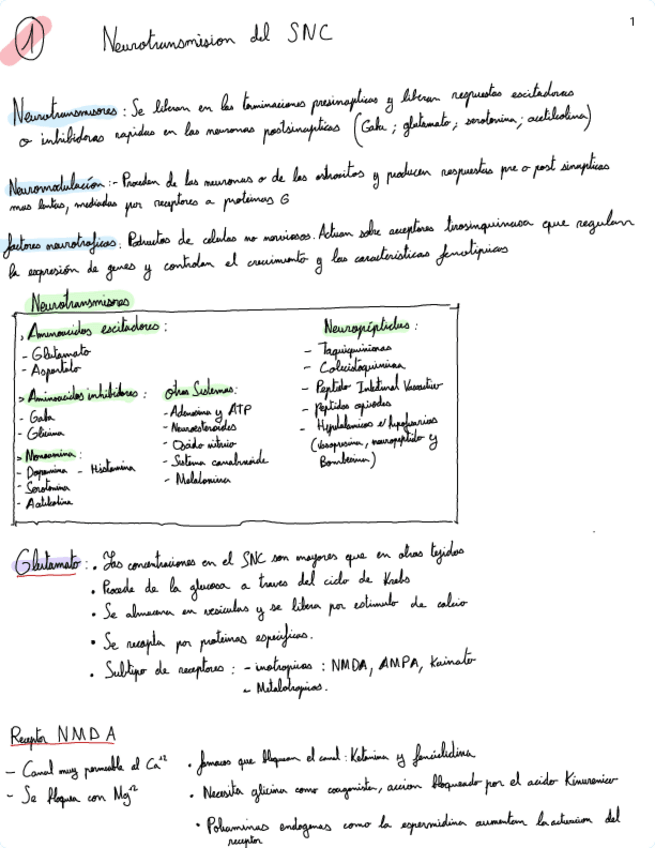 1
1 Neurotransmision del SNC
Neurotransmisores : Se liberan en las terminaciones presinapticas y liberan respuestas escitadoras
o inhibidoras rapidas en las neuronas postsinapticas (Gaba ; glutamato ; serotonina ; acetilcolina)
Neuromodulación :- Proceden de las neuronas o de los astrocitos y producen respuestas pre o post sinapticas
mas lentas, mediadas por receptores a proteinas G
factores neurotroficos : Productos de celulas no nerviosas. Actuan sobre receptores tirosinquinasa que regulan
la expresión de genes y controlan el crecimiento y las caracteristicas fenotipicas
Neurotransmisores
> Aminoacidos escitadores :
- Glutamato
- Aspartato
> Aminoacidos inhibidores :
- Gaba
- Glicina
> Monoamina :
- Dopamina - Histamina
- Serotonina
- Acetilcolina
otros Sistemas :
- Adenosina y ATP
- Neuroesteroides
- Oxido nitrico
- Sistema canabinoide
- Melatonina
Neuropéptidos :
- Taquiquininas
- Colecistoquinina
- Peptido Intestinal Vasoactivo
- peptidos opiodes
- Hipotalamicos e hipofisarios
(Vasopresina, neuropeptido y
Bombesina)
Glutamato : • Las concentraciones en el SNC son mayores que en otros tejidos
• Procede de la glucosa a traves del ciclo de Krebs
• Se almacena en vesiculas y se libera por estimulo de calcio
• Se recapta por proteinas especificas.
• Subtipo de receptores : - inotropicos : NMDA, AMPA, Kainato
- Metabotropicos.
Receptor NMDA
- Canal muy permeable al Ca+2
- Se bloquea con Mg+2
• farmacos que bloquean el canal : Ketamina y fenciclidina
• Necesita glicina como coagonista, accion bloqueado por el acido Kinurenico
• Poliaminas endogenas como la espermidina aumentan la actuacion del
receptor